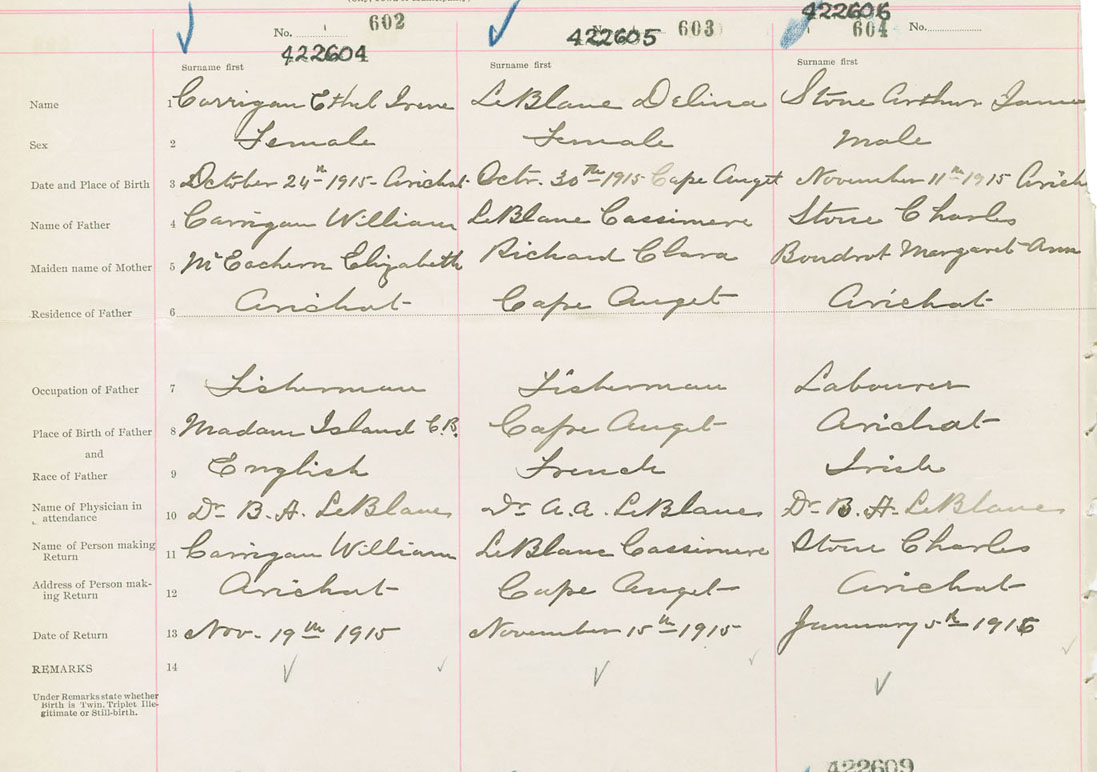 No. 602 No. 603 604 No.
422604 422605 422606
Surname first Surname first Surname first
Name 1 Carrigan Ethel Irene LeBlanc Delina Stone Arthur James
Sex 2 Female Female Male
Date and Place of Birth 3 October 24th 1915 - Arichat Octr. 30th 1915 Cape Auget November 11th 1915 Arich
Name of Father 4 Carrigan William LeBlanc Cassimere Stone Charles
Maiden name of Mother 5 McEachern Elizabeth Richard Clara Boudrot Margaret Ann
Residence of Father 6 Arichat Cape Auget Arichat
Occupation of Father 7 Fisherman Fisherman Labourer
Place of Birth of Father 8 Madam Island C.B. Cape Auget Arichat
and
Race of Father 9 English French Irish
Name of Physician in
attendance 10 Dr. B. A. LeBlanc Dr. A. A. LeBlanc Dr. B. A. LeBlanc
Name of Person making
Return 11 Carrigan William LeBlanc Cassimere Stone Charles
Address of Person mak-
ing Return 12 Arichat Cape Auget Arichat
Date of Return 13 Nov. 19th 1915 November 15th 1915 January 5th 1916
REMARKS 14
Under Remarks state whether
Birth is Twin, Triplet Ille-
gitimate or Still-birth.
422609